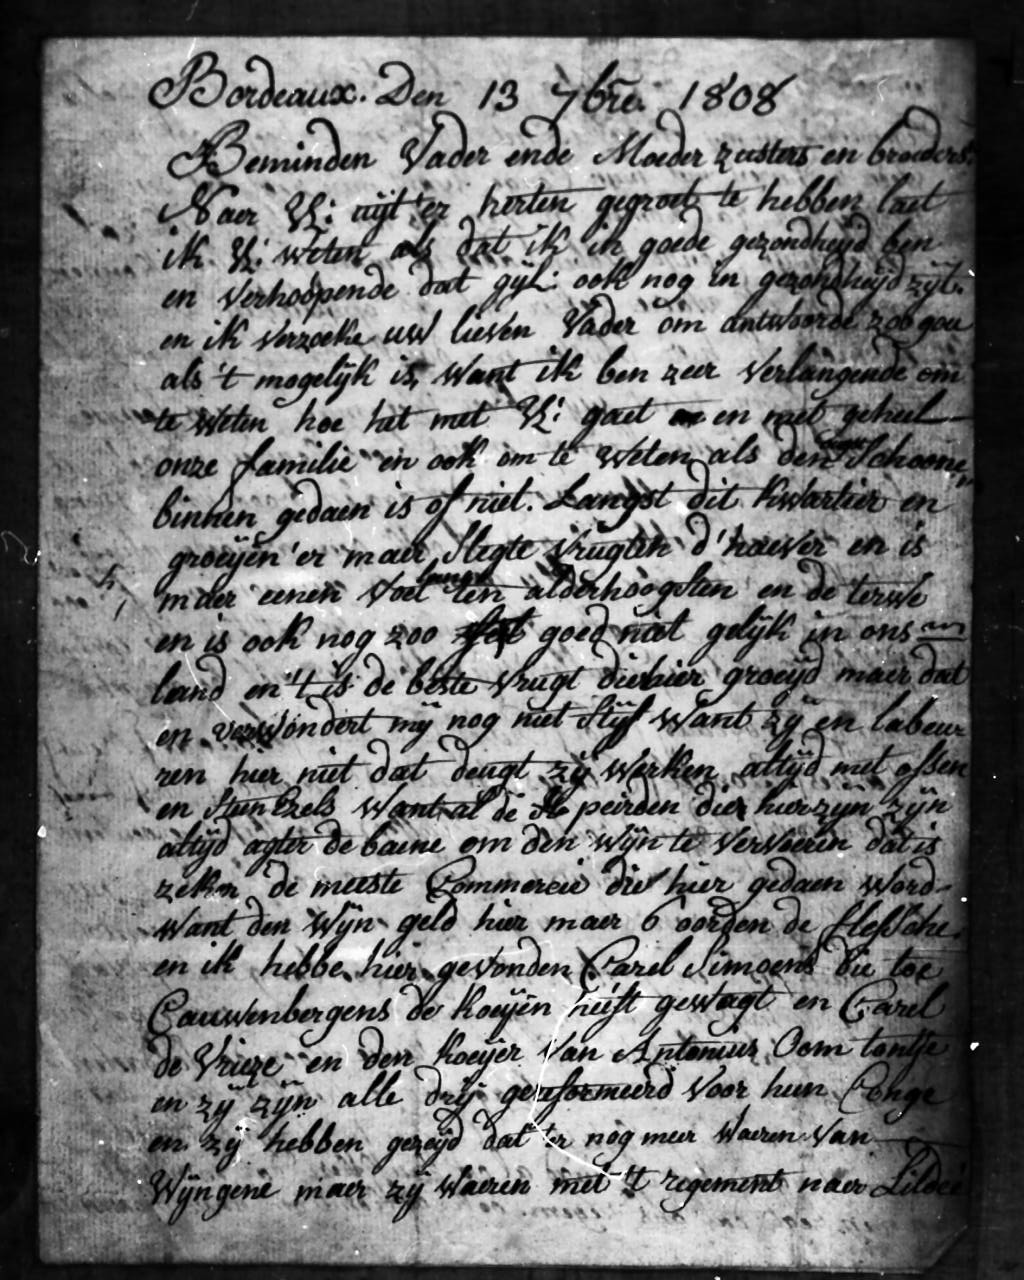 Bordeaux. Den 13 7bre. 1808
Beminden Vader ende Moeder zusters en broeders.
Naer U: uijt 'er herten gegroet te hebben laet
ik U: weten als dat ik in goede gezondheijd ben
en verhoopende dat gijL: ook nog in gezondheijd zijt.
en ik verzoeke uw lieven Vader om antwoorde zoo gau
als 't mogelijk is, want ik ben zeer verlangende om
te weten hoe het met U: gaet en met geheel
onze familie en ook om te weten als den Schoone
binnen gedaen is of niet. Langst dit kwartier en
groeijen 'er maer slegte vrugten d'haever en is
maer eenen voet lang ten alderhoogsten en de terwe
en is ook nog zoo goed niet gelijk in ons
land en 't is de beste vrugt die hier groeijd maer dat
en verwondert mij nog niet stijf want zij en labeur
ren hier niet dat deugt zij werken altijd met ossen
en Ezels want al de peirden die hier zijn zijn
altijd agter de baene om den wijn te vervoeren dat is
zeker de meeste Commercie die hier gedaen word-
want den wijn geld hier maer 6 oorden de flessche.
en ik hebbe hier gevonden Carel Simoens die toe
Cauwenbergens de koeijen heift gewagt en Carel
de Vrieze en den koeijer van Antonius Oom tontje
en zij zijn alle drij gereformeerd voor hun Conge
en zij hebben gezeijd dat er nog meer waeren van
Wijngene maer zij waeren met 't regement naer